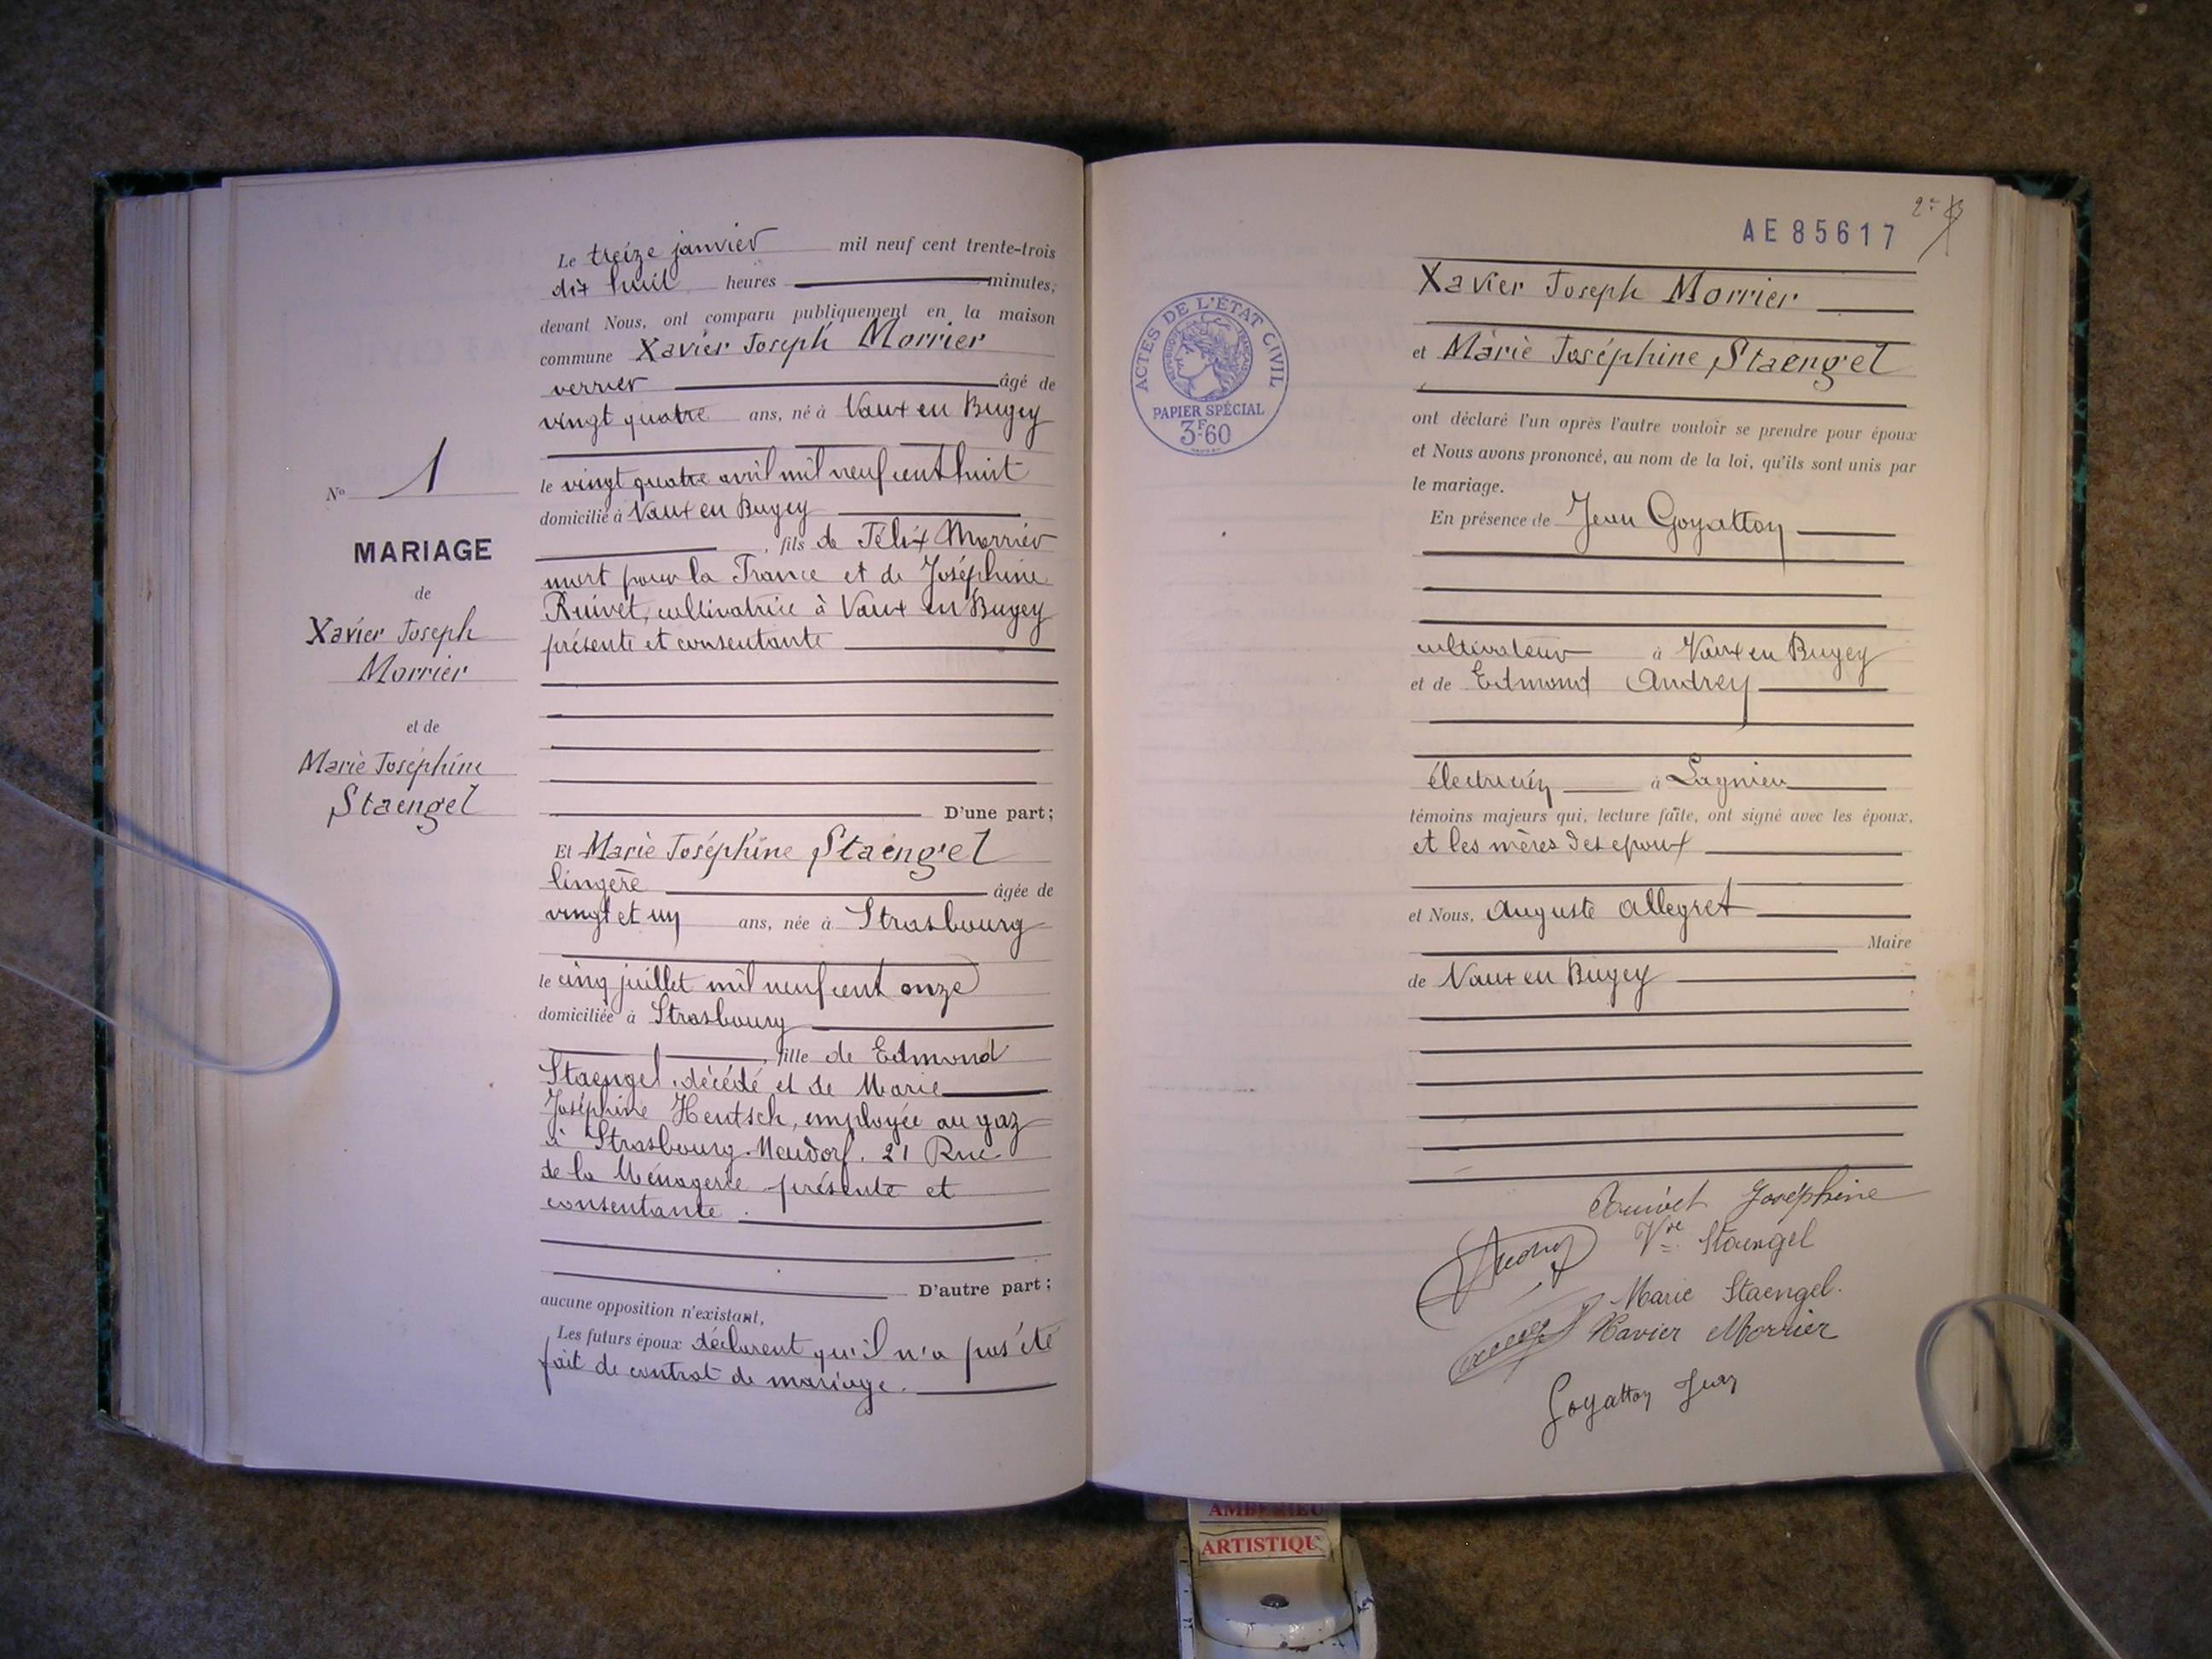 Le treize janvier mil neuf cent trente-trois
dix huit heures minutes,
devant Nous, ont comparu publiquement en la maison
commune Xavier Joseph Morrier
verrier âgé de
vingt quatre ans, né à Vaux en Bugey
le vingt quatre avril mil neuf cent huit
domicilié à Vaux en Bugey
, fils de Félix Morrier
mort pour la France et de Joséphine
Ruivet, cultivatrice à Vaux en Bugey
présente et consentante
D'une part;
Et Marie Joséphine Staengel
lingère âgée de
vingt et un ans, née à Strasbourg
le cinq juillet mil neuf cent onze
domiciliée à Strasbourg
, fille de Edmond
Staengel, décédé et de Marie
Joséphine Hentsch, employée au gaz
à Strasbourg-Neudorf. 21 Rue
de la Ménagerie présente et
consentante.
D'autre part;
aucune opposition n'existant,
Les futurs époux déclarent qu'il n'a pas été
fait de contrat de mariage.
No 1
MARIAGE
de
Xavier Joseph
Morrier
et de
Marie Joséphine
Staengel
AE 85617
ACTES DE L'ÉTAT CIVIL
RÉPUBLIQUE FRANÇAISE
PAPIER SPÉCIAL
3F.60
Xavier Joseph Morrier
et Marie Joséphine Staengel
ont déclaré l'un après l'autre vouloir se prendre pour époux
et Nous avons prononcé, au nom de la loi, qu'ils sont unis par
le mariage.
En présence de Jean Goyatton
cultivateur à Vaux en Bugey
et de Edmond Audrey
électricien à Lagnieu
témoins majeurs qui, lecture faite, ont signé avec les époux,
et les mères des époux
et Nous, Auguste Allegret
Maire
de Vaux en Bugey
Ruivet Joséphine
Vve Staengel
Marie Staengel.
Xavier Morrier
Goyatton Jean
AMBERIEU
ARTISTIQU